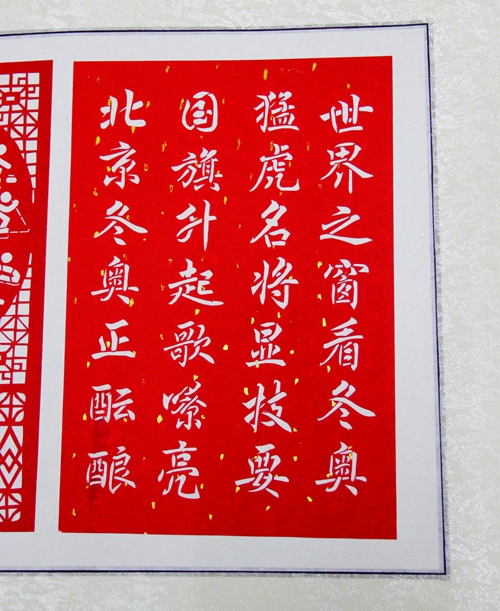 世界之窗看冬奥
猛虎名将显技要
国旗升起歌嘹亮
北京冬奥正酝酿